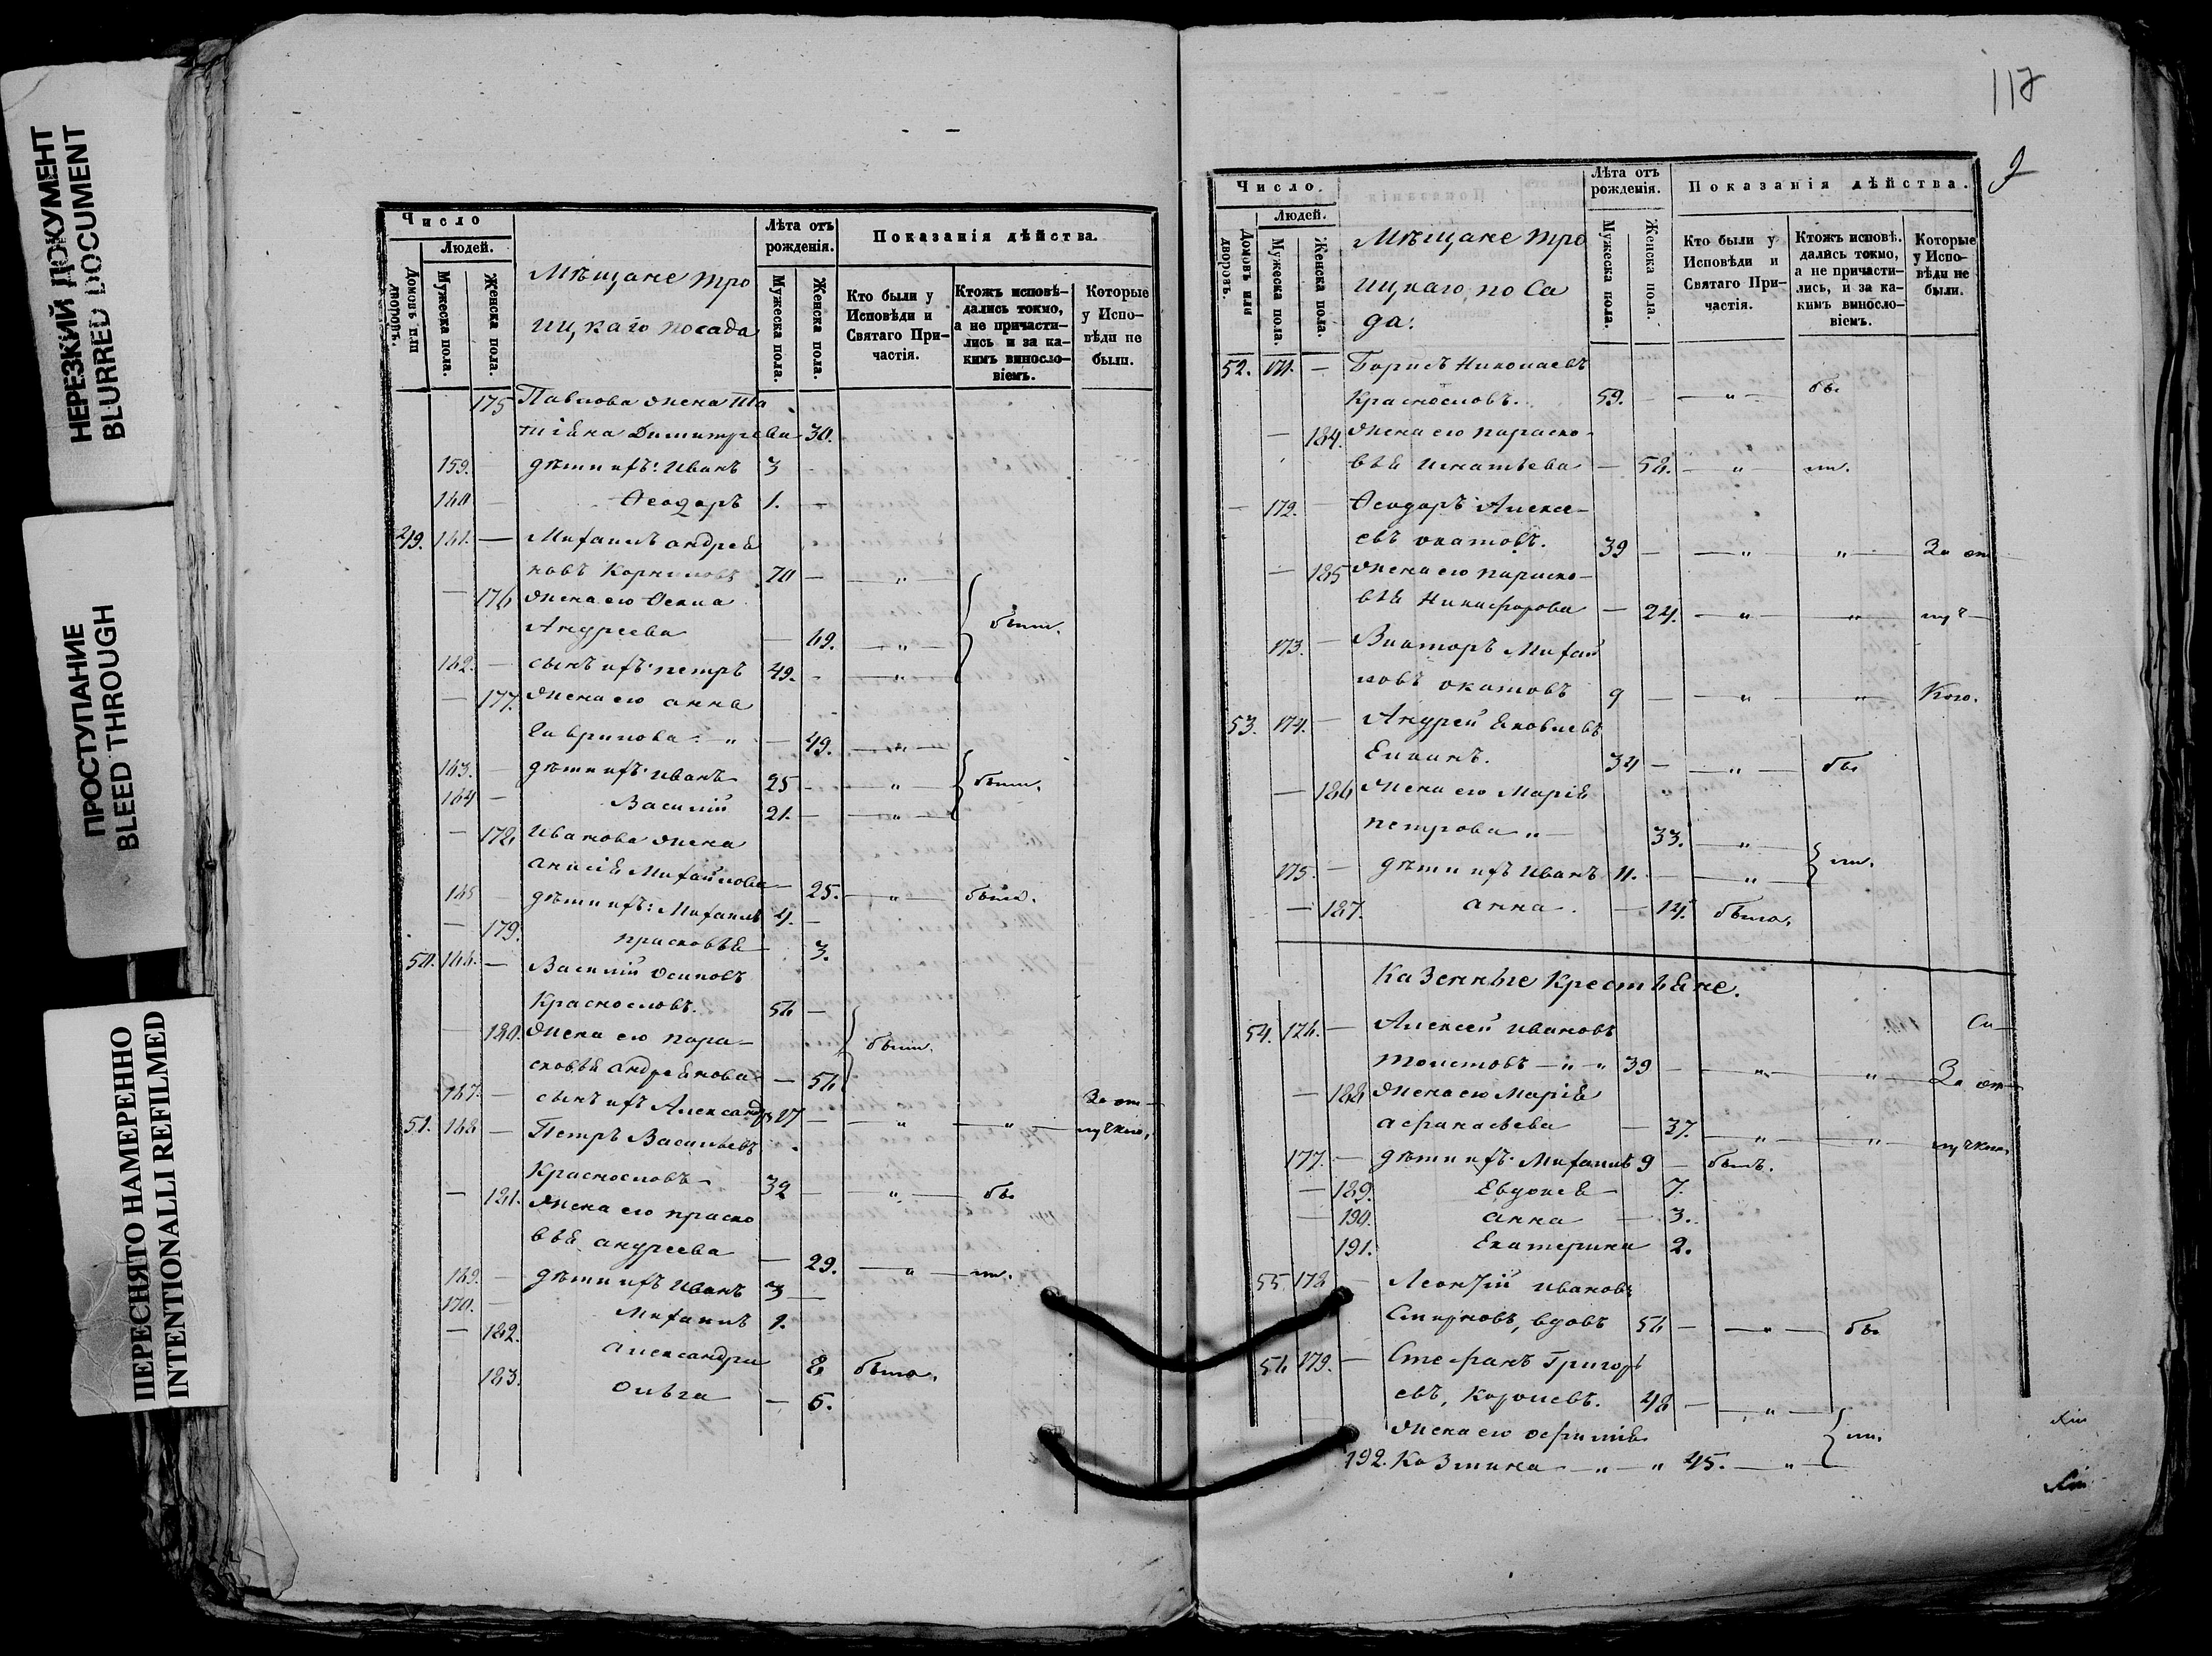 НЕРЕЗКИЙ ДОКУМЕНТ
BLURRED DOCUMENT
ПРОСТУПАНИЕ
BLEED THROUGH
ПЕРЕСНЯТО НАМЕРЕННО
INTENTIONALLI REFILMED
Число
Людей.
Домовъ или дворовъ.
Мужеска пола.
Женска пола.
Мѣщане Тро
ицкаго посада
Лѣта отъ рожденія.
Мужеска пола.
Женска пола.
Показанія дѣйства.
Кто были у Исповѣди и Святаго При-частія.
Ктожъ исповѣ-дались токмо, а не причасти-лись и за ка-кимъ виносло-віемъ.
Которые у Испо-вѣди не были.
175 Павлова жена Та
тіяна Димитрева 30.
159. дѣти ихъ: Иванъ 3
160 Ѳеодоръ 1.
49. 161. — Михаилъ Андрея
новъ Корниловъ 70 — „
176 жена его Ѳекла
Андреева — 69. — „ — были.
162. — сынъ ихъ Петръ 49. — „
— 177. жена его Анна
Гаврилова „ — 49. — „ —
163. — дѣти ихъ: Иванъ 25 — „ были.
164 — Василій 21. — „
— 178. Иванова жена
Анисія Михайлова — 25. — „ — была.
165 дѣти ихъ: Михаилъ 4. —
— 179. Прасковья 3.
50. 166. — Василій Осиповъ
Краснословъ. 56 —
— 180. жена его Пара-
сковья Андреянова — 56 были.
167. — сынъ ихъ Александръ 17 — „ — „ — За от-
51. 168 — Петръ Васильевъ лучкою,
Краснословъ — 32 — „ — бы
— 181. жена его Праско
вья Андреева — 29. — „ — ли.
169. — дѣти ихъ Иванъ 3 —
170. — Михаилъ 1.
— 182. Александра 8 была,
183. Ольга — 6.
117
9
Число.
Людей.
Домовъ или дворовъ.
Мужеска пола.
Женска пола.
Мѣщане Тро
ицкаго по Са
да:
Лѣта отъ рожденія.
Мужеска пола.
Женска пола.
Показанія дѣйства.
Кто были у Исповѣди и Святаго При-частія.
Ктожъ исповѣ.дались токмо, а не причасти-лись, и за ка-кимъ винослo-віемъ.
Которые у Испо-вѣди не были.
52. 171. — Борисъ Николаевъ
Краснословъ. 59. — „ — бы
— 184. жена его Параско-
вья Игнатьева — 58. — „ — ли.
— 172. — Ѳеодоръ Алексе-
евъ Окатовъ. 39 — „ — „ — За от
— 185 жена его Параско-
вья Никифорова — 24. — „ — „ — луч —
173. — Викторъ Михай
ловъ Окатовъ 9 — „ — „ — кою.
53. 174. — Андрей Яковлевъ
34 — „ — бы
— 186 жена его Марія
Петрова „ — 33. — „
175. — дѣти ихъ Иванъ 11. — „ — ли.
— 187. Анна. — 14. была,
Казенные Крестьяне.
54. 176. — Алексей Ивановъ
Толстовъ — „ „ 39 — „ — „ — За от
— 188 жена его Марія
Афанасьева — 37. — „ — „ — лучкою,
177. — дѣти ихъ: Михаилъ 9 — былъ.
— 189. Евдокія — 7.
— 190. Анна — 3.
191. Екатерина 2.
55 178 — Леонтій Ивановъ
Смирновъ, вдовъ 56 — „ — бы
56 179. — Стефанъ Григорь
евъ, Королевъ. 48 — „ —
жена его Ефимія
192. Козмина — „ „ 45. — „ — ли,